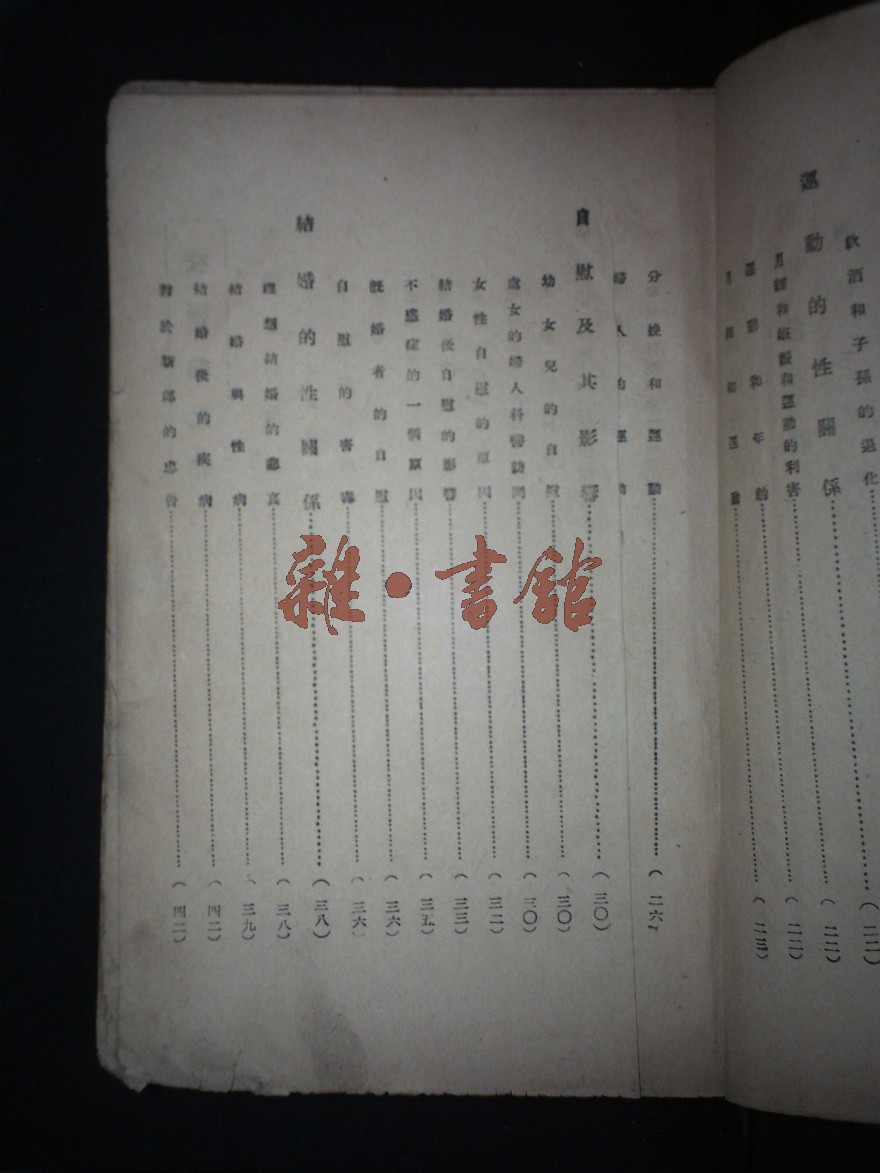 飲酒和子孫的退化……(二二)
運動的性關係……(二二)
月經和妊娠和運動的利害……(二二)
運動和年齡……(二三)
月經和運動
分娩和運動……(二六)
婦人的運動
自慰及其影響……(三〇)
幼女兒的自慰……(三〇)
處女的婦人科醫訪問……(三〇)
女性自慰的原因……(三二)
結婚後自慰的影響……(三三)
不感症的一個原因……(三五)
既婚者的自慰……(三六)
自慰的害毒……(三六)
結婚的性關係……(三八)
理想結婚的悲哀……(三八)
結婚與性病……(三九)
結婚後的疾病……(四二)
對於新郎的忠告……(四二)
雜·書館